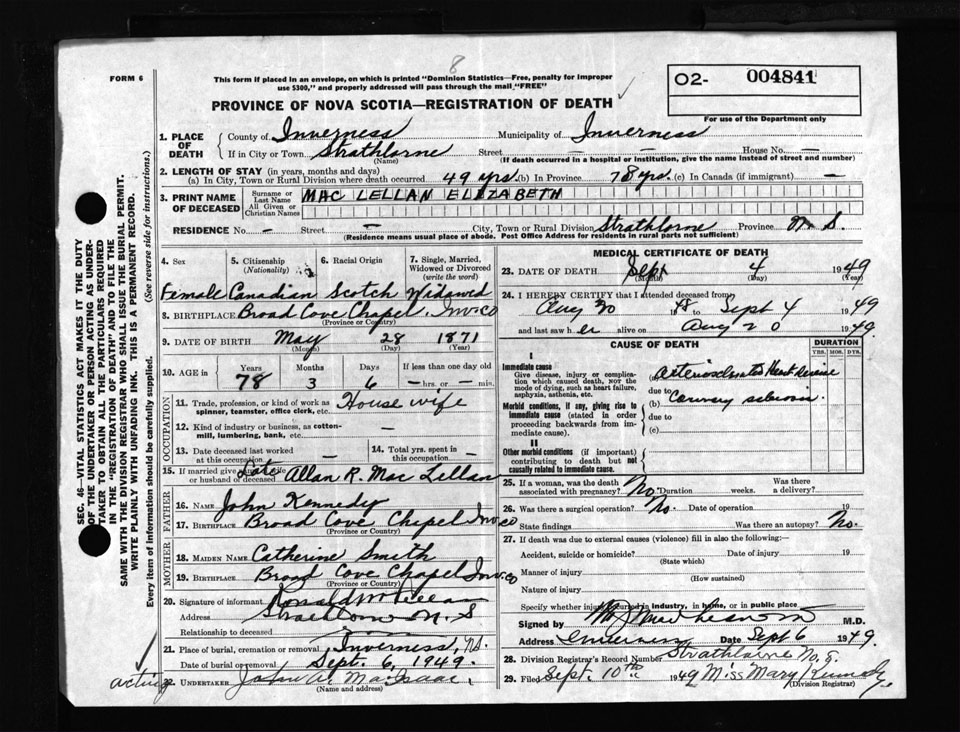 8
FORM 6
This form if placed in an envelope, on which is printed "Dominion Statistics—Free, penalty for improper
use $300," and properly addressed will pass through the mail "FREE"
O2- 004841
For use of the Department only
PROVINCE OF NOVA SCOTIA—REGISTRATION OF DEATH
SEC. 46—VITAL STATISTICS ACT MAKES IT THE DUTY
OF THE UNDERTAKER OR PERSON ACTING AS UNDER-
TAKER TO OBTAIN ALL THE PARTICULARS REQUIRED
IN THE "REGISTRATION OF DEATH" AND TO FILE THE
SAME WITH THE DIVISION REGISTRAR WHO SHALL ISSUE THE BURIAL PERMIT.
WRITE PLAINLY WITH UNFADING INK. THIS IS A PERMANENT RECORD.
Every item of information should be carefully supplied. (See reverse side for instructions.)
1. PLACE OF DEATH
County of Inverness Municipality of Inverness
If in City or Town Strathlorne Street — House No. —
(Name) (If death occurred in a hospital or institution, give the name instead of street and number)
2. LENGTH OF STAY (in years, months and days)
(a) In City, Town or Rural Division where death occurred 49 yrs. (b) In Province 78 yrs. (c) In Canada (if immigrant) —
3. PRINT NAME OF DECEASED
Surname or Last Name MAC LELLAN ELIZABETH
All Given or Christian Names
RESIDENCE No. — Street — City, Town or Rural Division Strathlorne Province N.S.
(Residence means usual place of abode. Post Office Address for residents in rural parts not sufficient)
4. Sex 5. Citizenship (Nationality) 6. Racial Origin 7. Single, Married, Widowed or Divorced (write the word)
Female Canadian Scotch Widowed
8. BIRTHPLACE Broad Cove Chapel, Inv. Co
(Province or Country)
9. DATE OF BIRTH May 28 1871
(Month) (Day) (Year)
10. AGE in Years Months Days If less than one day old
78 3 6 —hrs. or —min.
OCCUPATION
11. Trade, profession, or kind of work as spinner, teamster, office clerk, etc. House wife
12. Kind of industry or business, as cotton-mill, lumbering, bank, etc. —
13. Date deceased last worked at this occupation —
14. Total yrs. spent in this occupation —
15. If married give name of wife or husband of deceased Late Allan R. Mac Lellan
FATHER
16. Name John Kennedy
17. Birthplace Broad Cove Chapel Inv. Co
(Province or Country)
MOTHER
18. Maiden Name Catherine Smith
19. Birthplace Broad Cove Chapel Inv. Co
(Province or Country)
20. Signature of informant Ronald McLellan
Address Strathlorne N.S
Relationship to deceased
21. Place of burial, cremation or removal Inverness, N.S.
Date of burial or removal Sept. 6, 1949.
acting
22. UNDERTAKER John A. MacIsaac.
(Name and address)
MEDICAL CERTIFICATE OF DEATH
23. DATE OF DEATH Sept 4 1949
(Month) (Day) (Year)
24. I HEREBY CERTIFY that I attended deceased from
Aug 30 1948 to Sept 4 1949
and last saw her alive on Aug 20 1949.
CAUSE OF DEATH DURATION
YRS. MOS. DYS.
I
Immediate cause
Give disease, injury or complication which caused death, NOT the mode of dying, such as heart failure, asphyxia, asthenia, etc.
(a) Arteriosclerotic Heart disease
due to
Morbid conditions, if any, giving rise to immediate cause (stated in order proceeding backwards from immediate cause).
(b) Coronary sclerosis.
due to
(c)
II
Other morbid conditions (if important) contributing to death but not causally related to immediate cause.
25. If a woman, was the death associated with pregnancy? No Duration weeks. Was there a delivery?
26. Was there a surgical operation? No. Date of operation 19
State findings Was there an autopsy? No.
27. If death was due to external causes (violence) fill in also the following:
Accident, suicide or homicide? Date of injury 19
(State which)
Manner of injury
(How sustained)
Nature of injury
Specify whether injury occurred in industry, in home, or in public place
Signed by M.D.
Address Inverness Date Sept 6 1949.
28. Division Registrar's Record Number Strathlorne No. 9.
29. Filed Sept. 10th 1949 Miss Mary Kennedy.
(Division Registrar)